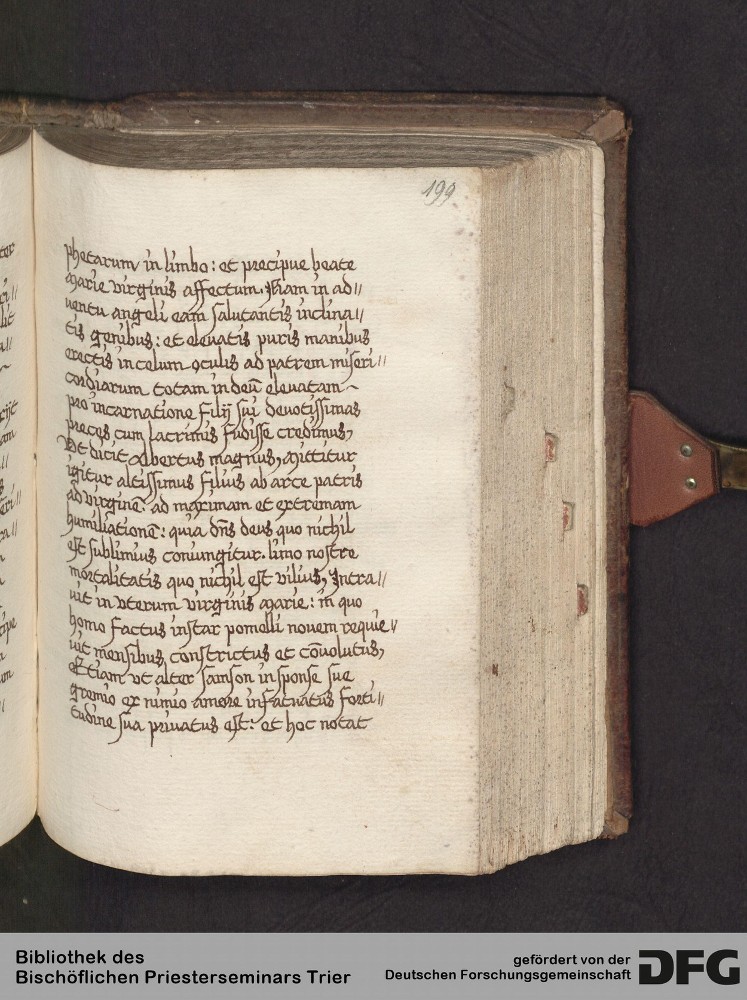 199
phetarum in limbo: et precipue beate
Marie virginis affectum. Nam in ad//
uentu angeli eam salutantis inclina//
tis genibus: et eleuatis puris manibus
erectis in celum oculis ad patrem miseri//
cordiarum totam in deū eleuatam
pro incarnatione filij sui deuotissimas
preces cum lacrimis fudisse credimus,
Vt dicit Albertus magnus, Mittitur
igitur altissimus filius ab arce patris
ad virginē: ad maximam et extremam
humiliationē: quia dn̄s deus quo nichil
est sublimius coniungitur limo nostre
mortalitatis quo nichil est vilius, Intra//
uit in vterum virginis Marie: in quo
homo factus instar pomelli nouem requie//
uit mensibus, constrictus et cōuolutus,
Etiam vt alter Samson in sponse sue
gremio ex nimio amore infatuatus forti//
tudine sua priuatus est: et hoc notat
Bibliothek des
Bischöflichen Priesterseminars Trier
gefördert von der
Deutschen Forschungsgemeinschaft
DFG